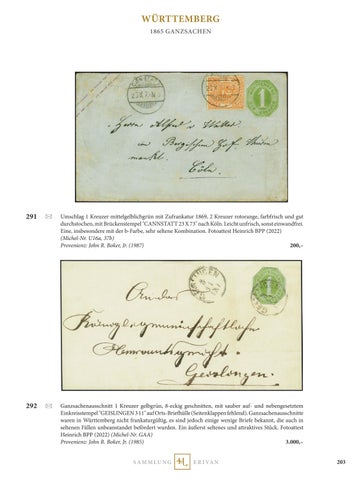 WÜRTTEMBERG
1865 GANZSACHEN
CANNSTATT
1
Herrn Alfred v
im Bergischen Hof
markt.
Cöln.
291 Umschlag 1 Kreuzer mittelgelblichgrün mit Zufrankatur 1869, 2 Kreuzer rotorange, farbfrisch und gut
durchstochen, mit Brückenstempel "CANNSTATT 23 X 73" nach Köln. Leicht unfrisch, sonst einwandfrei.
Eine, insbesondere mit der b-Farbe, sehr seltene Kombination. Fotoattest Heinrich BPP (2022)
(Michel-Nr. U16a, 37b)
Provenienz: John R. Boker, Jr. (1987) 200,–
GEISLINGEN
1
An das
Königl. gemeinschaftliche
Geislingen.
292 Ganzsachenausschnitt 1 Kreuzer gelbgrün, 8-eckig geschnitten, mit sauber auf- und nebengesetztem
Einkreisstempel "GEISLINGEN 3 11" auf Orts-Briefhülle (Seitenklappen fehlend). Ganzsachenausschnitte
waren in Württemberg nicht frankaturgültig, es sind jedoch einige wenige Briefe bekannt, die auch in
seltenen Fällen unbeanstandet befördert wurden. Ein äußerst seltenes und attraktives Stück. Fotoattest
Heinrich BPP (2022) (Michel-Nr. GAA)
Provenienz: John R. Boker, Jr. (1985) 3.000,–
SAMMLUNG ERIVAN
203